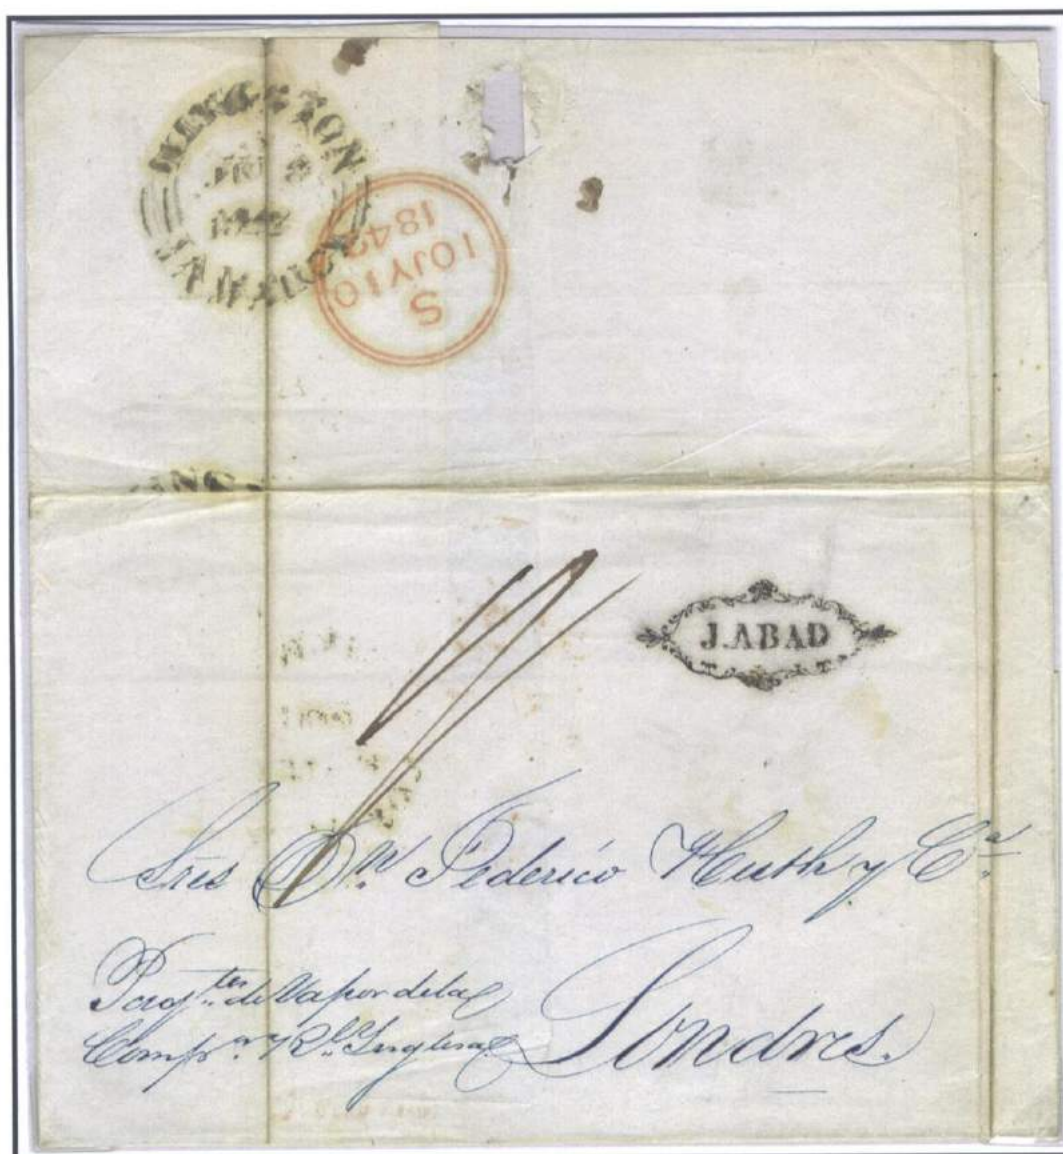 KINGSTON
JAMAICA
S
10JY10
1842
J.ABAD
Sres Dn. Federico Huth y Ca.
Paqtes. de Vapor de la
Compa. Rl. Inglesa
Londres.